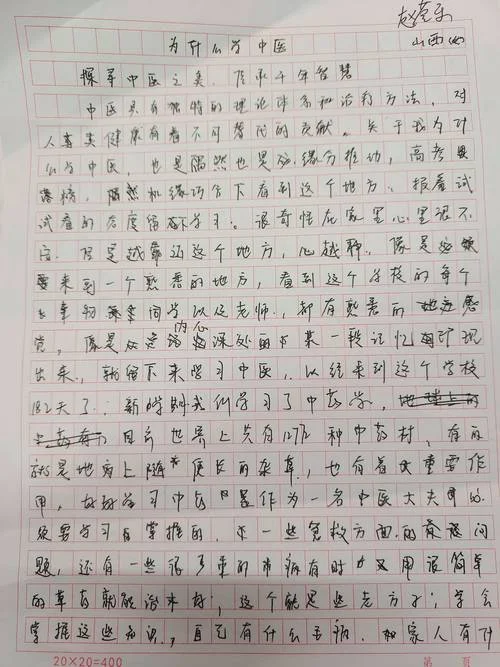 赵莹乐
山西
为什么学中医
探寻中医之美，传承千年智慧
中医具有独特的理论体系和治疗方法，对
人畜类健康有着不可替代的贡献。关于我为什
么学中医，也是偶然也是 缘分推动，高考
落榜，偶然机缘巧合下看到这个地方，报着试
试看的态度留下学习。很奇怪在家里心里很不
但是越靠近这个地方，心越静。像是
来到一个熟悉的地方，看到这个学校的每个
事物 同学以及老师，都有熟悉的 感
觉，像是 内心深处的 某一段记忆 印现
出来，就留下来学习中医，以经来到这个学校
182天了。 我们学习了中药学，
目前世界上共有1272种中药材，有的
就是地面上随 便长的杂草，也有着大重要作
用，好好学习中药 是作为一名中医大夫的
须要学习与掌握的。 一些急救方面的 问
题，还有一些很 的 病有时 用很简单
的草药就能治 好，这个就是些老方子；学会
掌握这些知识，自己有什么 病， 家人有什
20×20=400
第 页